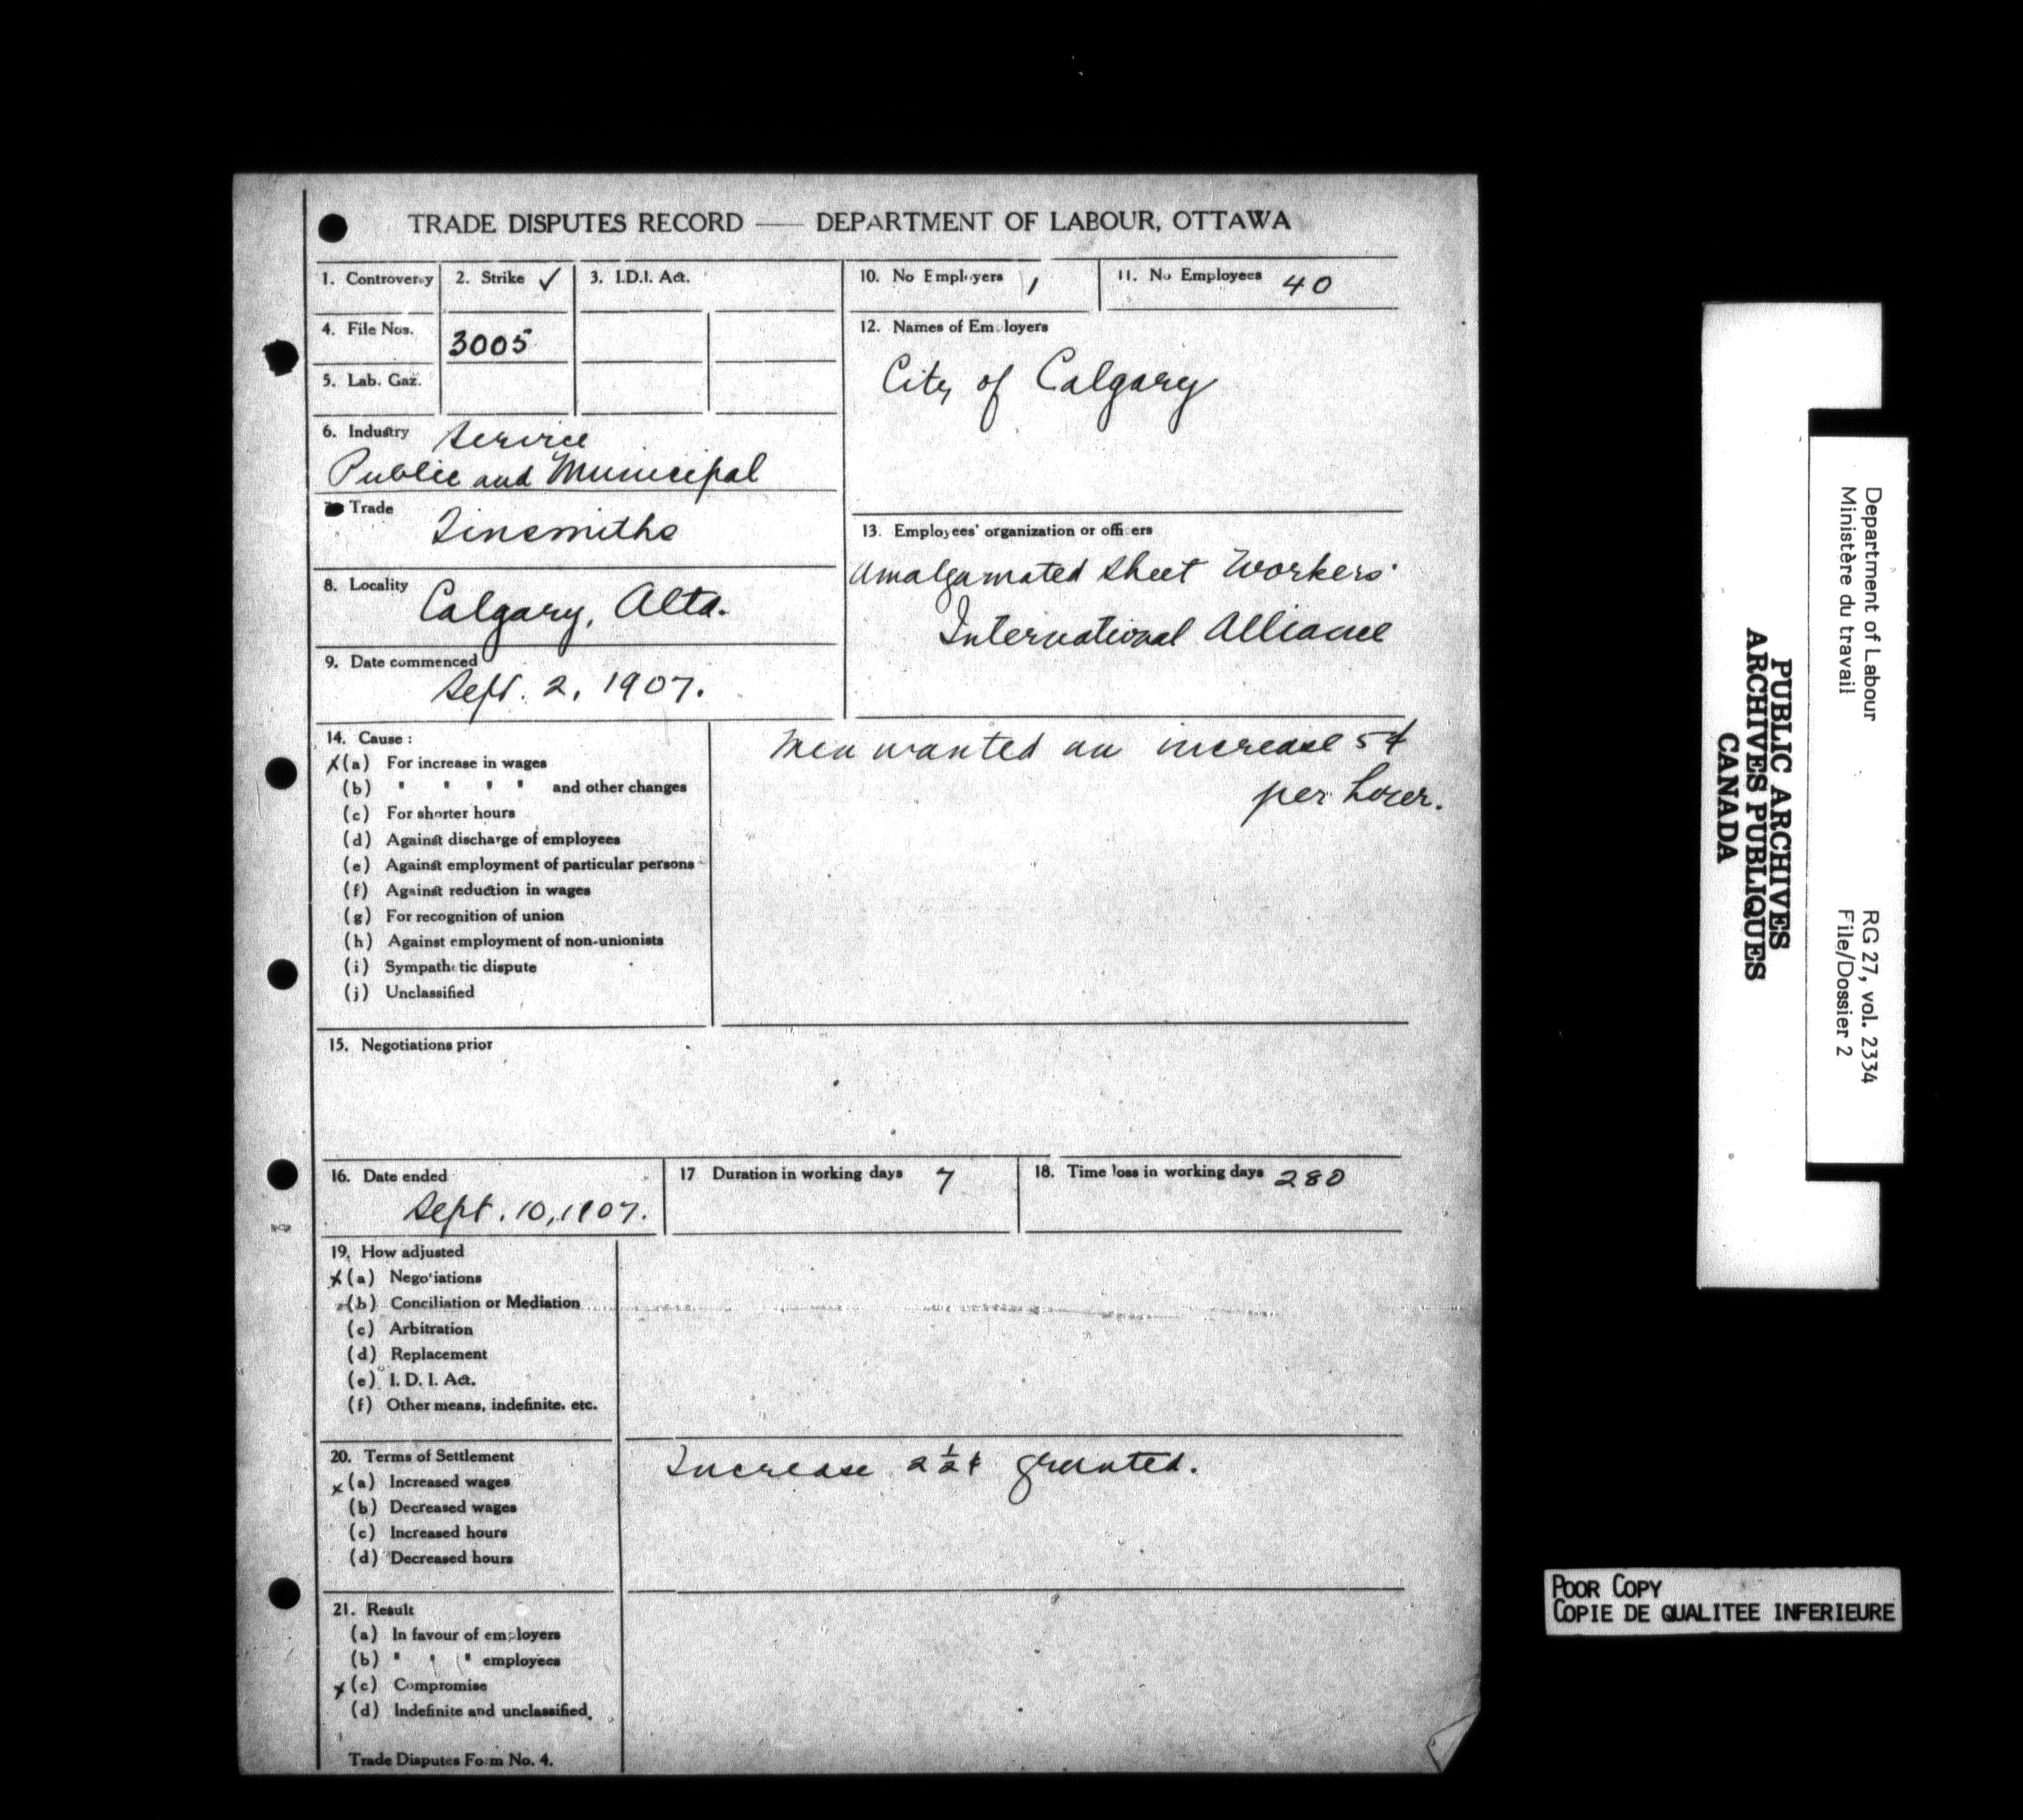 TRADE DISPUTES RECORD — DEPARTMENT OF LABOUR, OTTAWA
1. Controversy
2. Strike ✓
3. I.D.I. Act.
4. File Nos. 3005
5. Lab. Gaz.
6. Industry Service
Public and Municipal
Trade Tinsmiths
8. Locality Calgary, Alta.
9. Date commenced
Sept. 2, 1907.
10. No Employers 1
11. No Employees 40
12. Names of Employers
City of Calgary
13. Employees' organization or officers
Amalgamated Sheet Workers'
International Alliance
14. Cause :
x (a) For increase in wages
(b) " " " " and other changes
(c) For shorter hours
(d) Against discharge of employees
(e) Against employment of particular persons
(f) Against reduction in wages
(g) For recognition of union
(h) Against employment of non-unionists
(i) Sympathetic dispute
(j) Unclassified
Men wanted an increase 5¢
per hour.
15. Negotiations prior
16. Date ended
Sept. 10, 1907.
17 Duration in working days 7
18. Time loss in working days 280
19. How adjusted
x (a) Negotiations
(b) Conciliation or Mediation
(c) Arbitration
(d) Replacement
(e) I. D. I. Act.
(f) Other means, indefinite, etc.
20. Terms of Settlement
x (a) Increased wages
(b) Decreased wages
(c) Increased hours
(d) Decreased hours
Increase 2½¢ granted.
21. Result
(a) In favour of employers
(b) " " " employees
x (c) Compromise
(d) Indefinite and unclassified.
Trade Disputes Form No. 4.
Department of Labour
Ministère du travail
RG 27, vol. 2334
File/Dossier 2
PUBLIC ARCHIVES
ARCHIVES PUBLIQUES
CANADA
POOR COPY
COPIE DE QUALITEE INFERIEURE